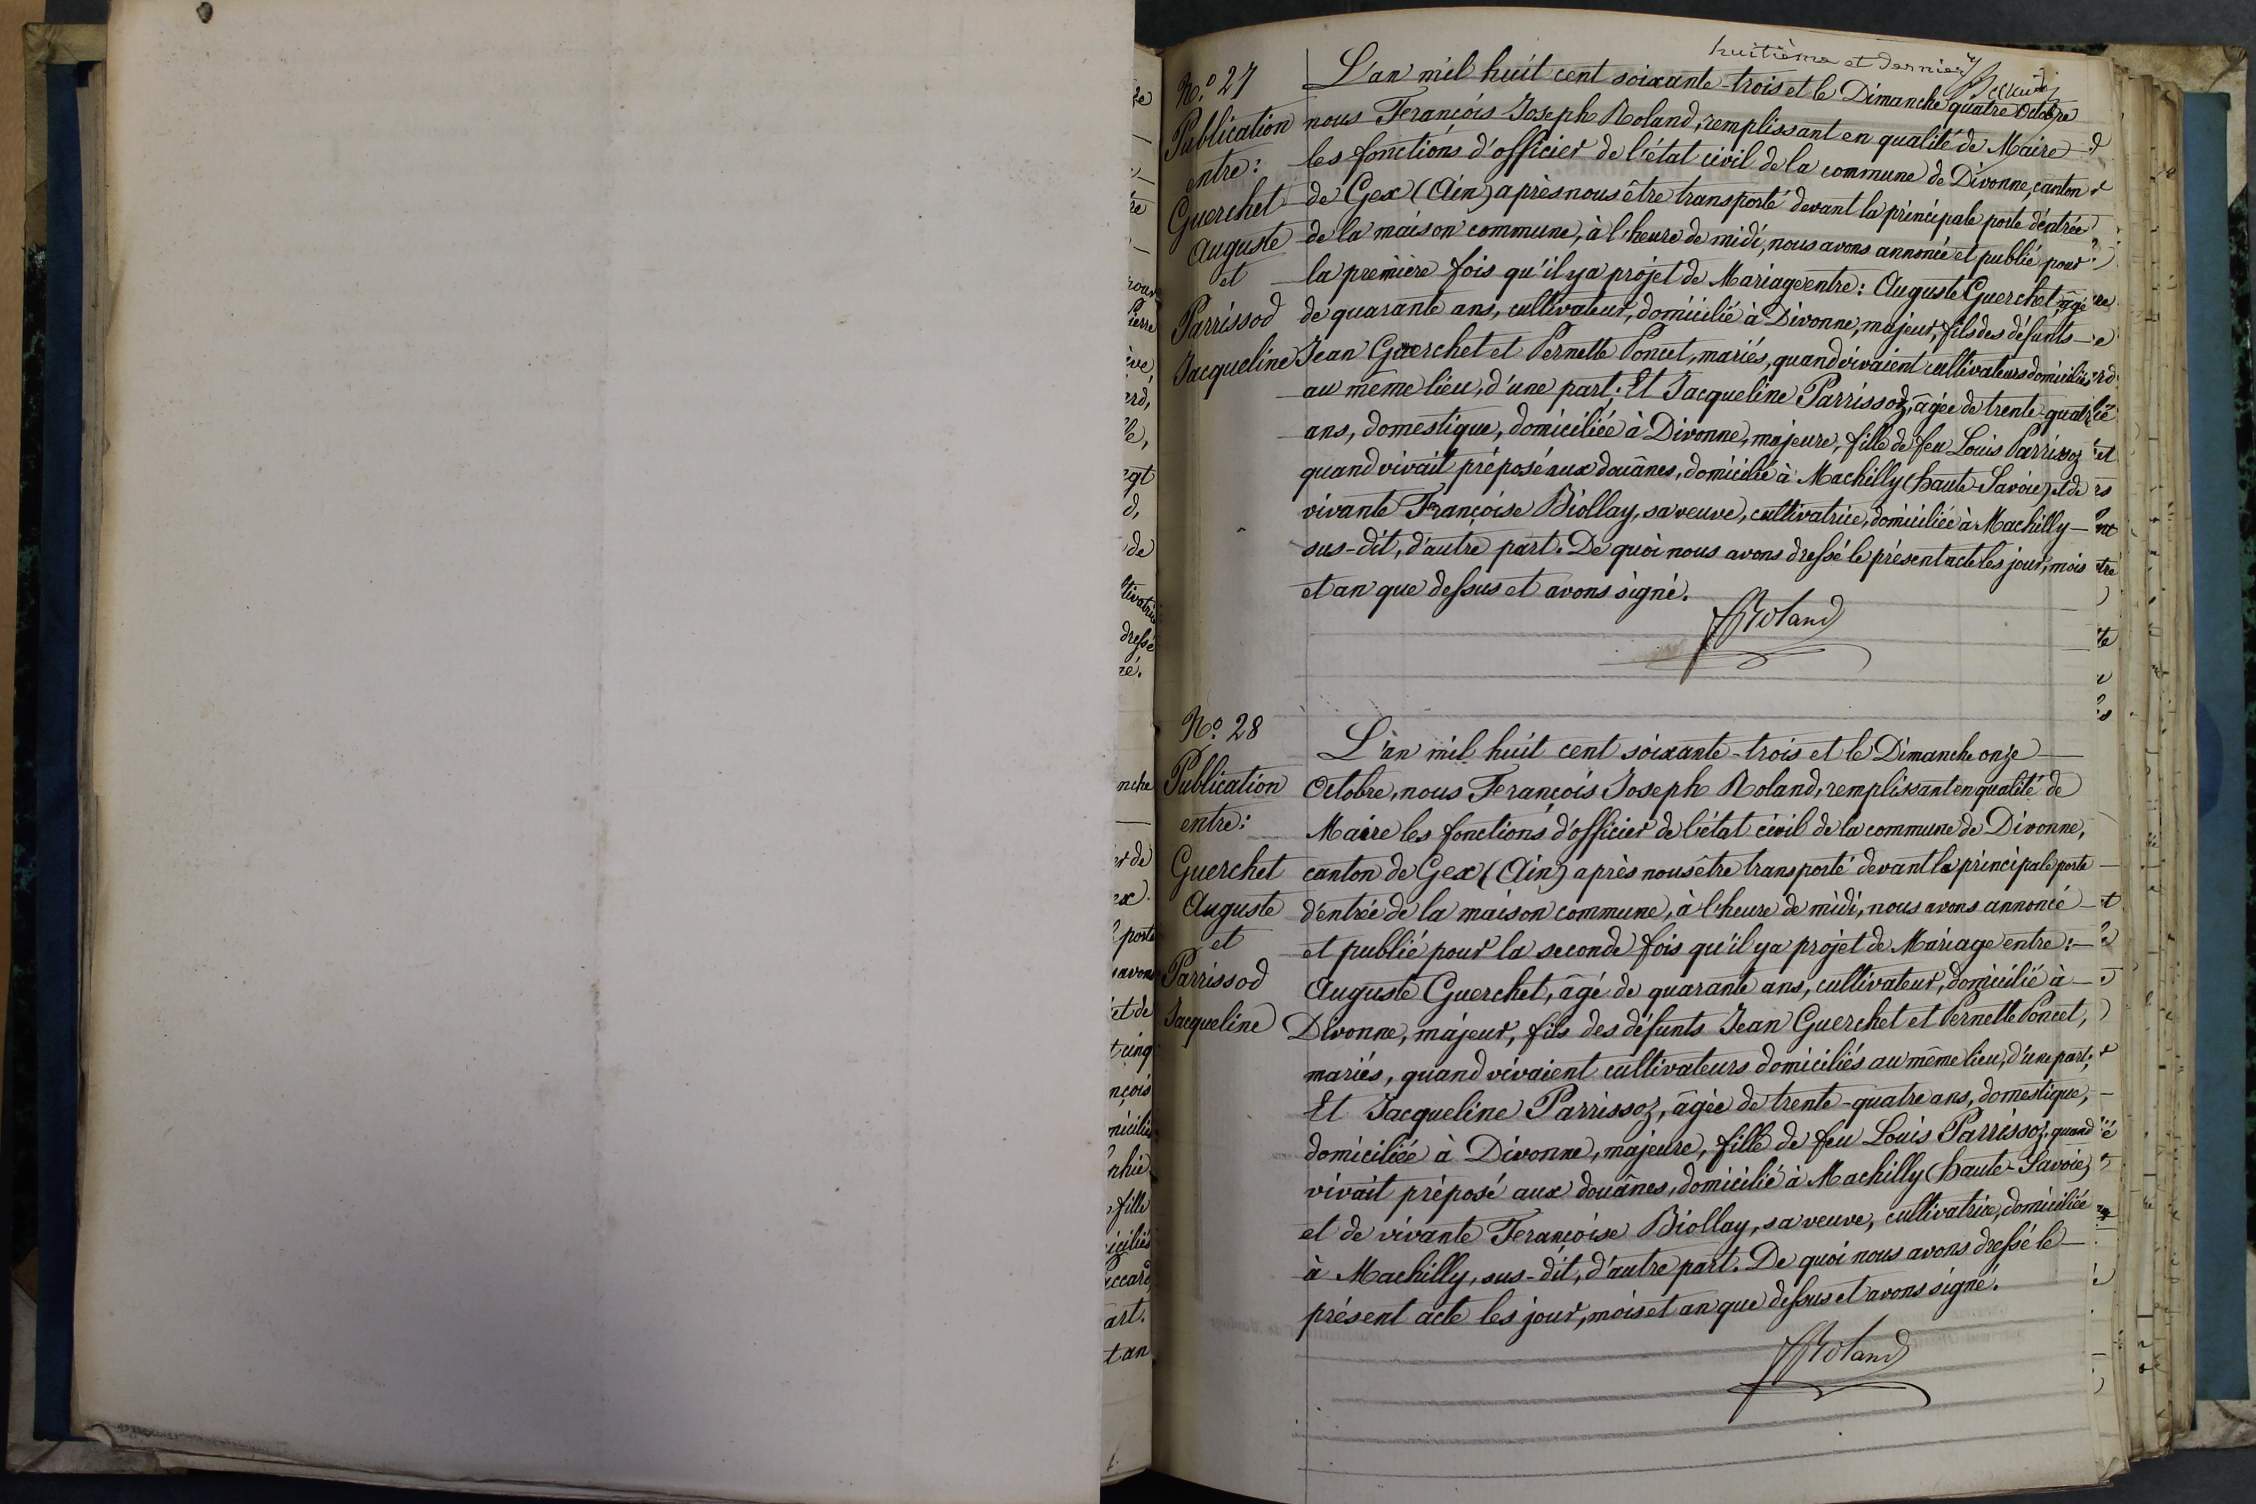 huitième et dernier
N.º 27
Publication
entre:
Guerchet
Auguste
et
Parrissod
Jacqueline
L'an mil huit cent soixante-trois et le Dimanche quatre Octobre
nous François Joseph Roland, remplissant en qualité de Maire
les fonctions d'officier de l'état civil de la commune de Divonne, canton
de Gex (Ain) après nous être transporté devant la principale porte d'entrée
de la maison commune, à l'heure de midi, nous avons annoncé et publié pour
la première fois qu'il y a projet de Mariage entre: Auguste Guerchet, âgé
de quarante ans, cultivateur, domicilié à Divonne, majeur, fils des défunts —
Jean Guerchet et Pernette Poncet, mariés, quand vivaient cultivateurs domiciliés
au même lieu, d'une part; Et Jacqueline Parrissoz, âgée de trente-quatre
ans, domestique, domiciliée à Divonne, majeure, fille de feu Louis Parrissoz
quand vivait préposé aux douânes, domicilié à Machilly (haute-Savoie) et de
vivante Françoise Biollay, sa veuve, cultivatrice, domiciliée à Machilly —
sus-dit, d'autre part. De quoi nous avons dressé le présent acte les jour, mois
et an que dessus et avons signé.
FRoland
N.º 28
Publication
entre:
Guerchet
Auguste
et
Parrissod
Jacqueline
L'an mil huit cent soixante-trois et le Dimanche onze —
Octobre, nous François Joseph Roland, remplissant en qualité de
Maire les fonctions d'officier de l'état civil de la commune de Divonne,
canton de Gex (Ain) après nous être transporté devant la principale porte
d'entrée de la maison commune, à l'heure de midi, nous avons annoncé —
et publié pour la seconde fois qu'il y a projet de Mariage entre: —
Auguste Guerchet, âgé de quarante ans, cultivateur, domicilié à —
Divonne, majeur, fils des défunts Jean Guerchet et Pernette Poncet,
mariés, quand vivaient cultivateurs domiciliés au même lieu, d'une part;
Et Jacqueline Parrissoz, âgée de trente-quatre ans, domestique,
domiciliée à Divonne, majeure, fille de feu Louis Parrissoz, quand
vivait préposé aux douânes, domicilié à Machilly (haute-Savoie)
et de vivante Françoise Biollay, sa veuve, cultivatrice, domiciliée
à Machilly, sus-dit, d'autre part. De quoi nous avons dressé le —
présent acte les jour, mois et an que dessus et avons signé.
FRoland